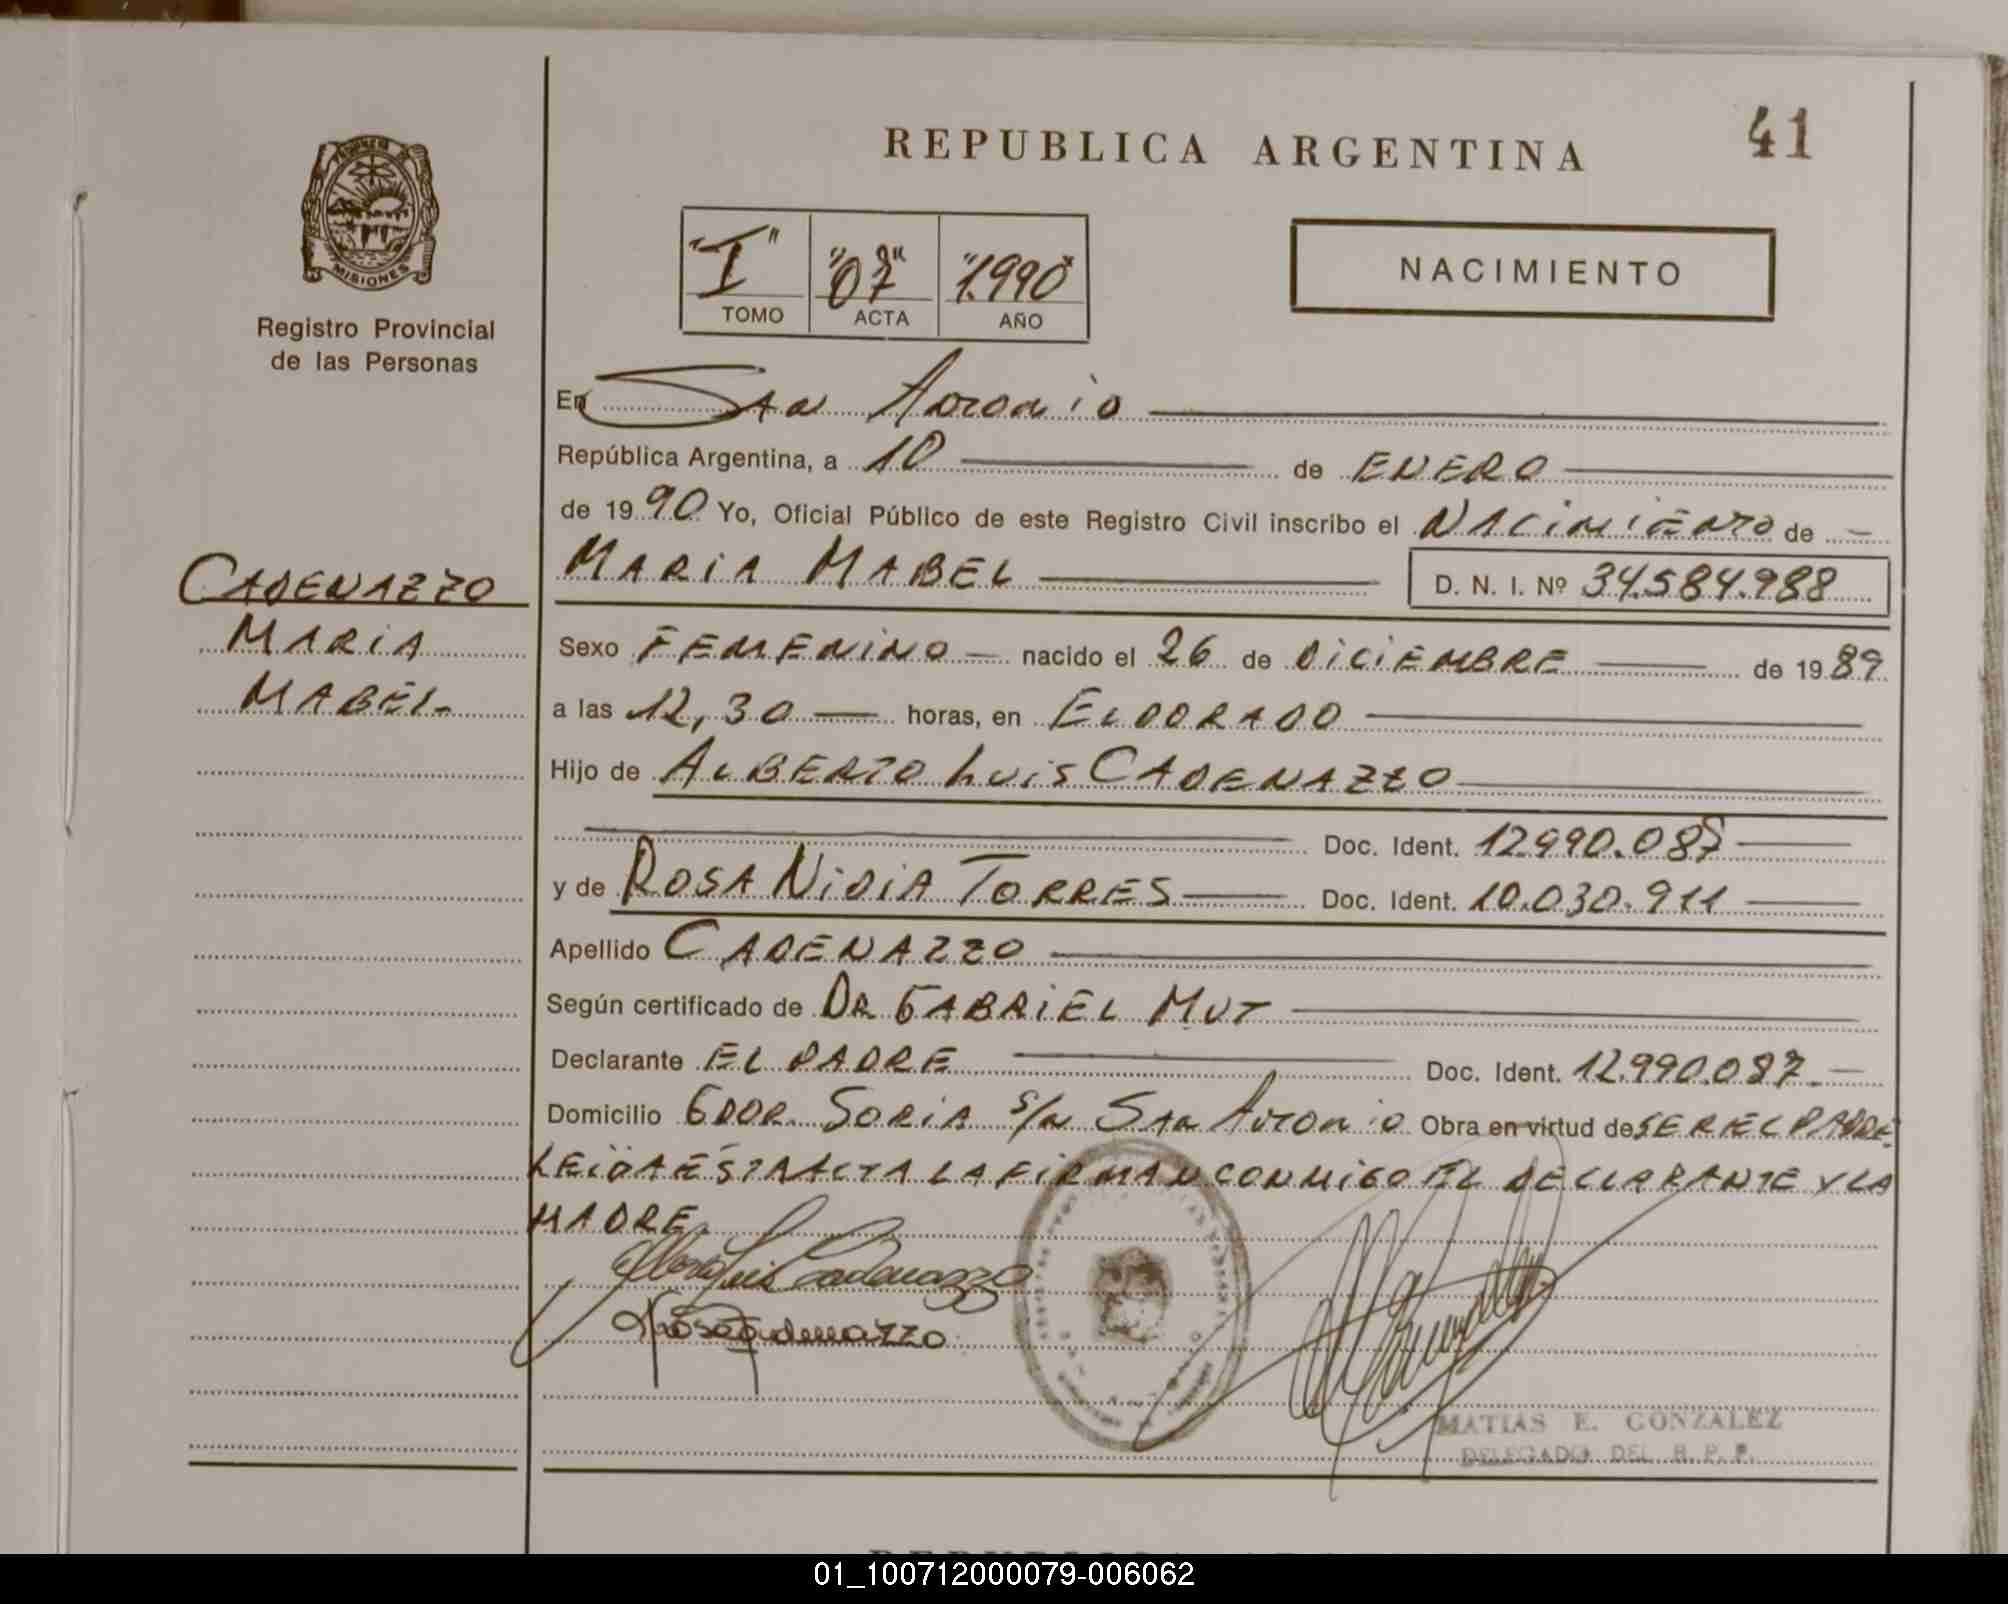 REPUBLICA ARGENTINA
41
PROVINCIA DE
MISIONES
Registro Provincial
de las Personas
"I" TOMO
"07" ACTA
"1.990" AÑO
NACIMIENTO
En San Antonio
República Argentina, a 10 de ENERO
de 1990 Yo, Oficial Público de este Registro Civil inscribo el NACIMIENTO de
MARIA MABEL D. N. I. Nº 34.584.988
CADENAZZO
MARIA
MABEL-
Sexo FEMENINO nacido el 26 de DICIEMBRE de 1989
a las 12,30 horas, en ELDORADO
Hijo de ALBERTO LUIS CADENAZZO
Doc. Ident. 12.990.087
y de ROSA NIDIA TORRES Doc. Ident. 10.030.911
Apellido CADENAZZO
Según certificado de DR GABRIEL MUT
Declarante EL PADRE Doc. Ident. 12.990.087.
Domicilio GDOR. SORIA S/N San Antonio Obra en virtud de SER EL PADRE.
LEIDA ESTA ACTA LA FIRMAN CONMIGO EL DECLARANTE Y LA
MADRE.
Alberto Luis Cadenazzo
Rosa T. de Cadenazzo
MATIAS E. GONZALEZ
DELEGADO DEL R. P. P.
01_100712000079-006062